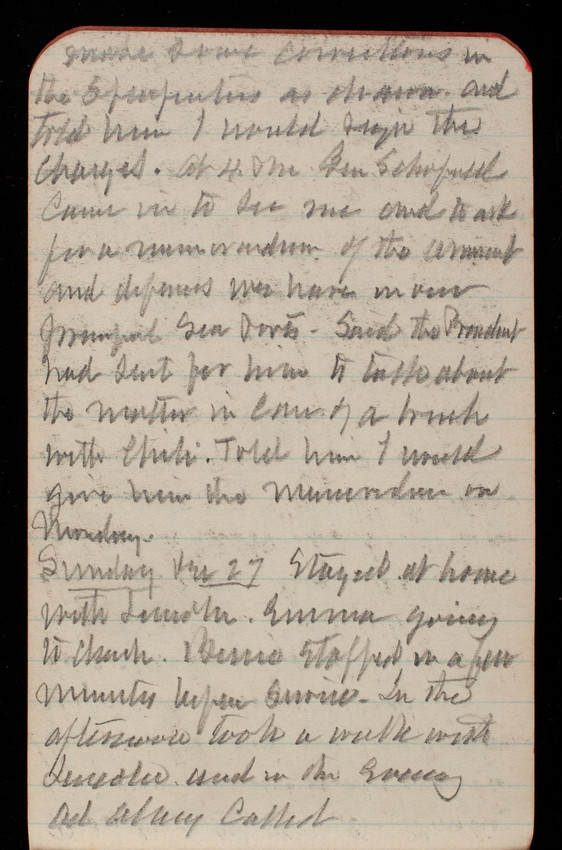 make some corrections in
the specifications as drawn and
told him I would sign the
charges. At 4 Gen Schofield
came in to see me and to ask
for a memorandum of the armament
and defenses we have in our
principal Sea Ports - Said the President
had sent for him to talk about
the matter in case of a break
with Chili. Told him I would
give him the memorandum on
Monday.
Sunday Dec 27 Stayed at home
with Lincoln. Emma going
to church. Bernie Stopped in a few
minutes before Service - In the
afternoon took a walk with
Lincoln and in the Evening
Called